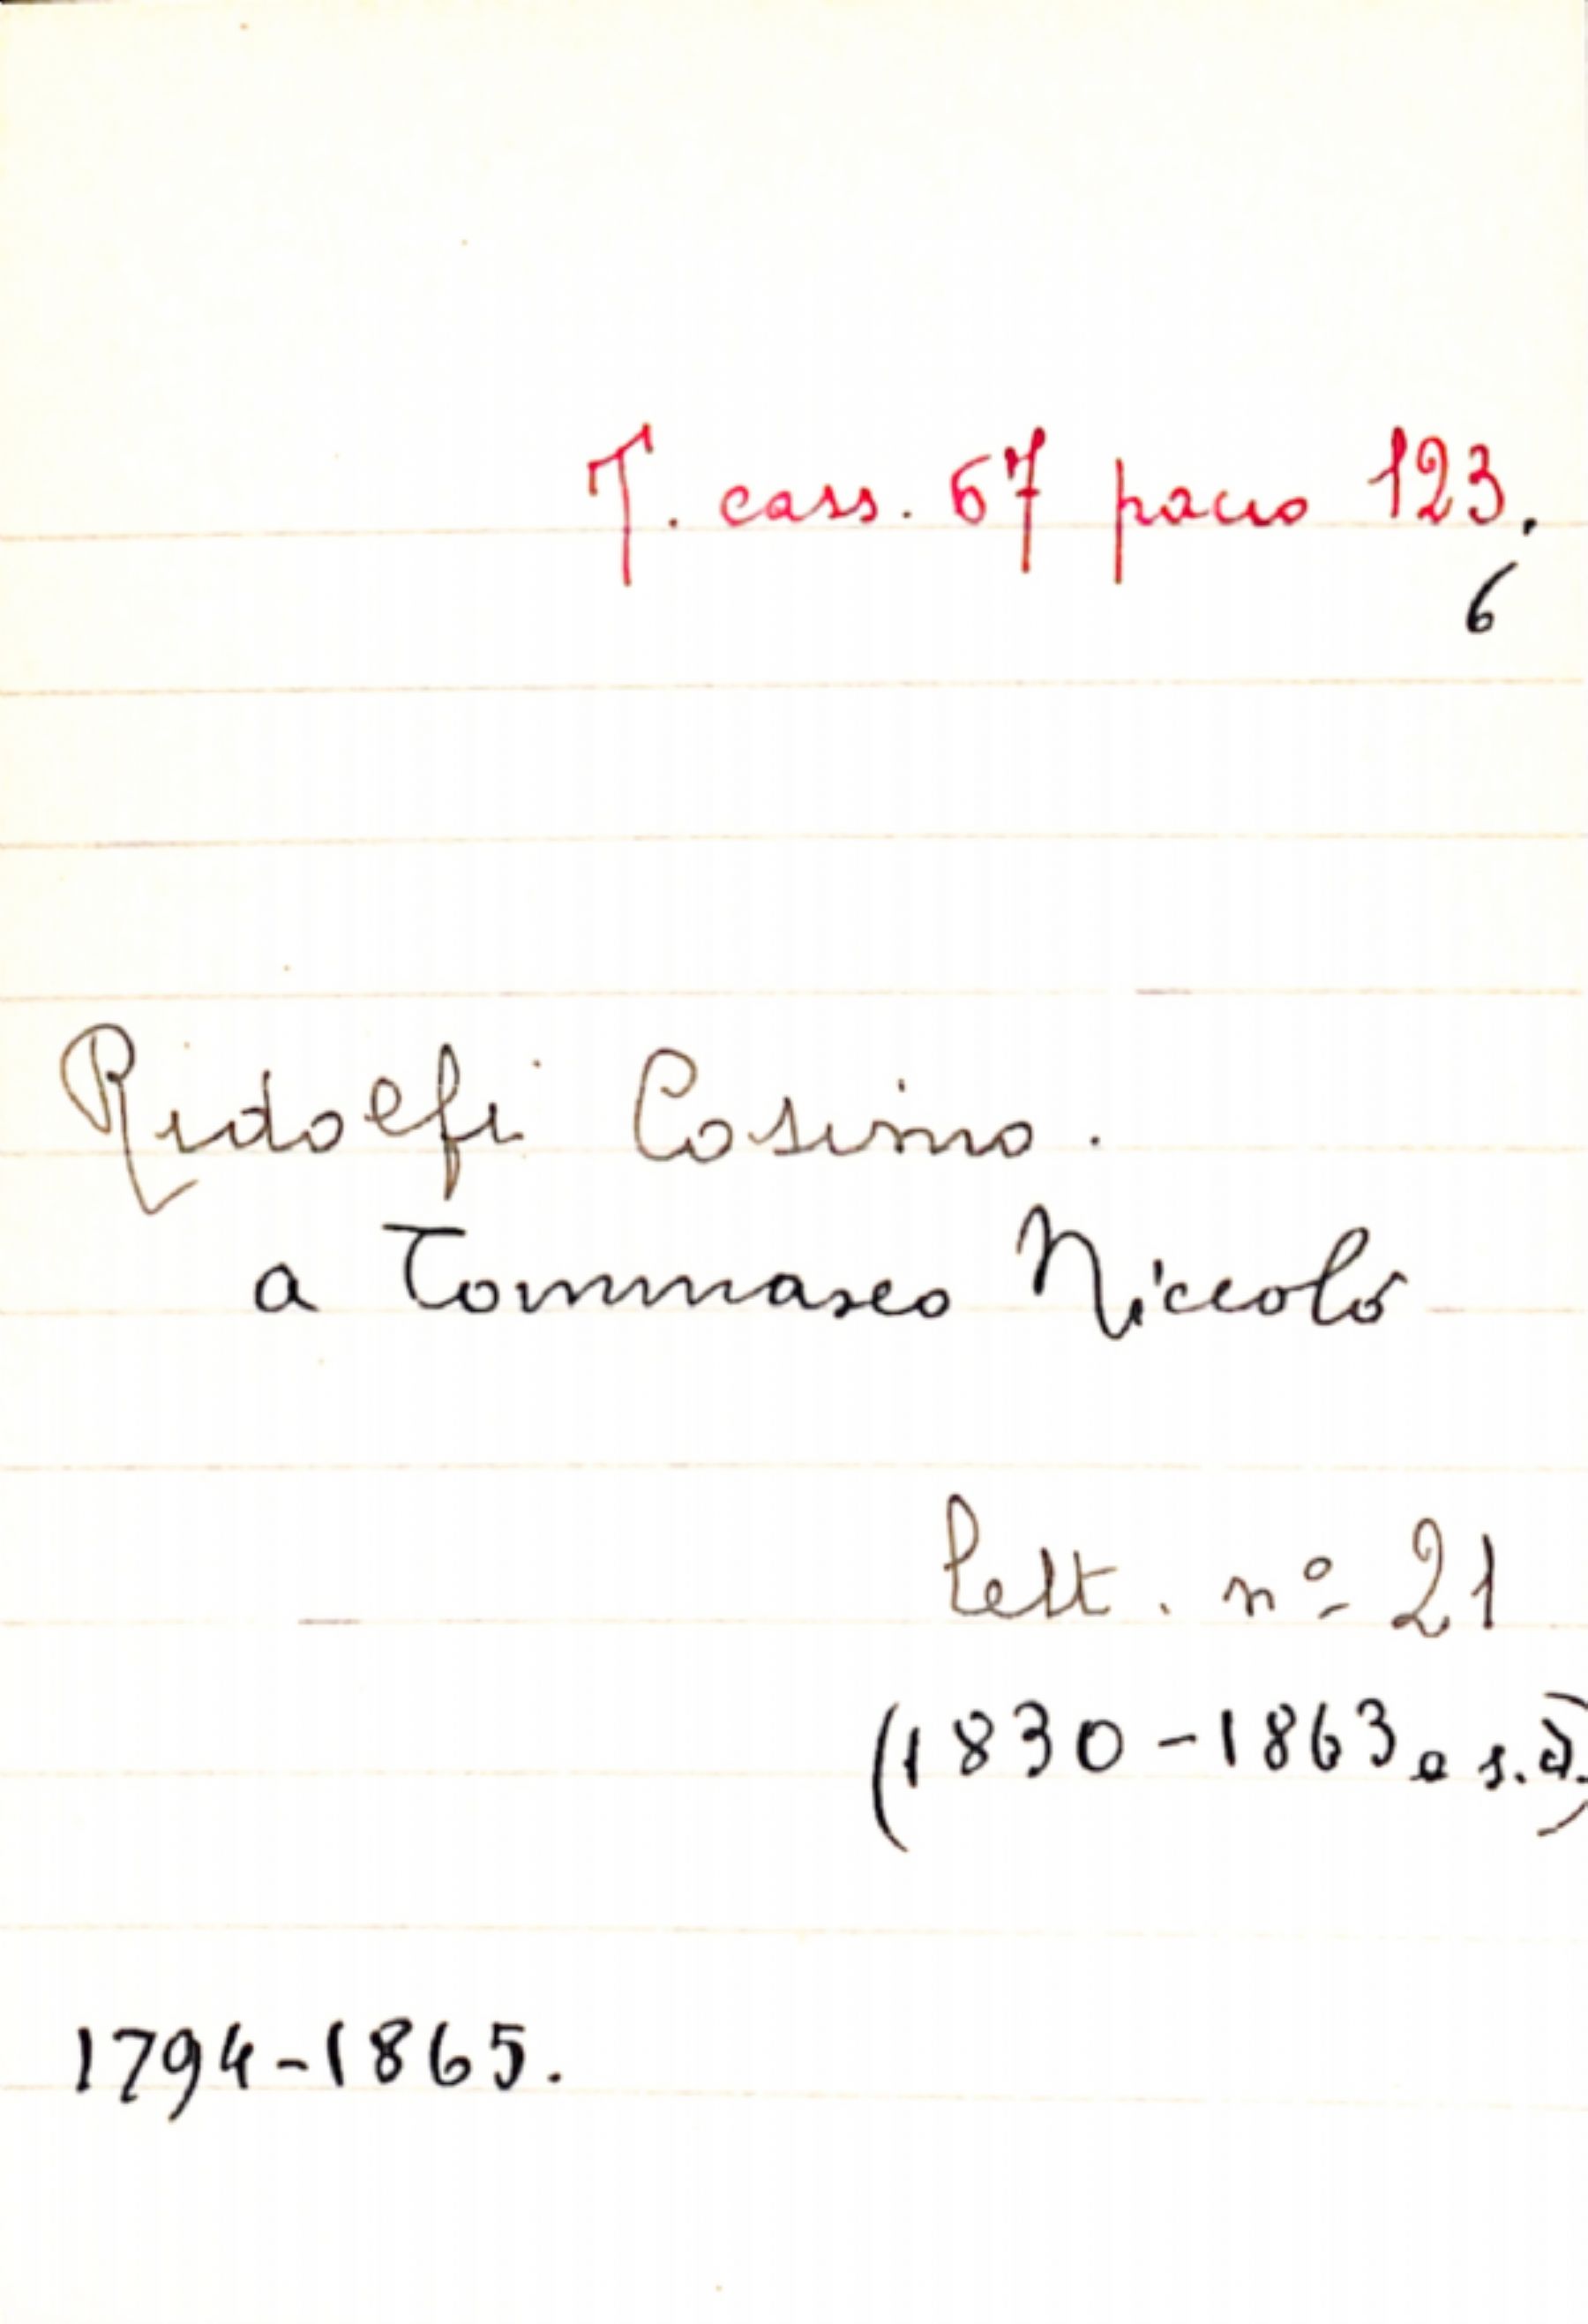 T. cass. 67 pacco 123.
6
Ridolfi Cosimo.
a Tommaseo Niccolò
lett. nº 21
(1830-1863 e s.d.)
1794-1865.